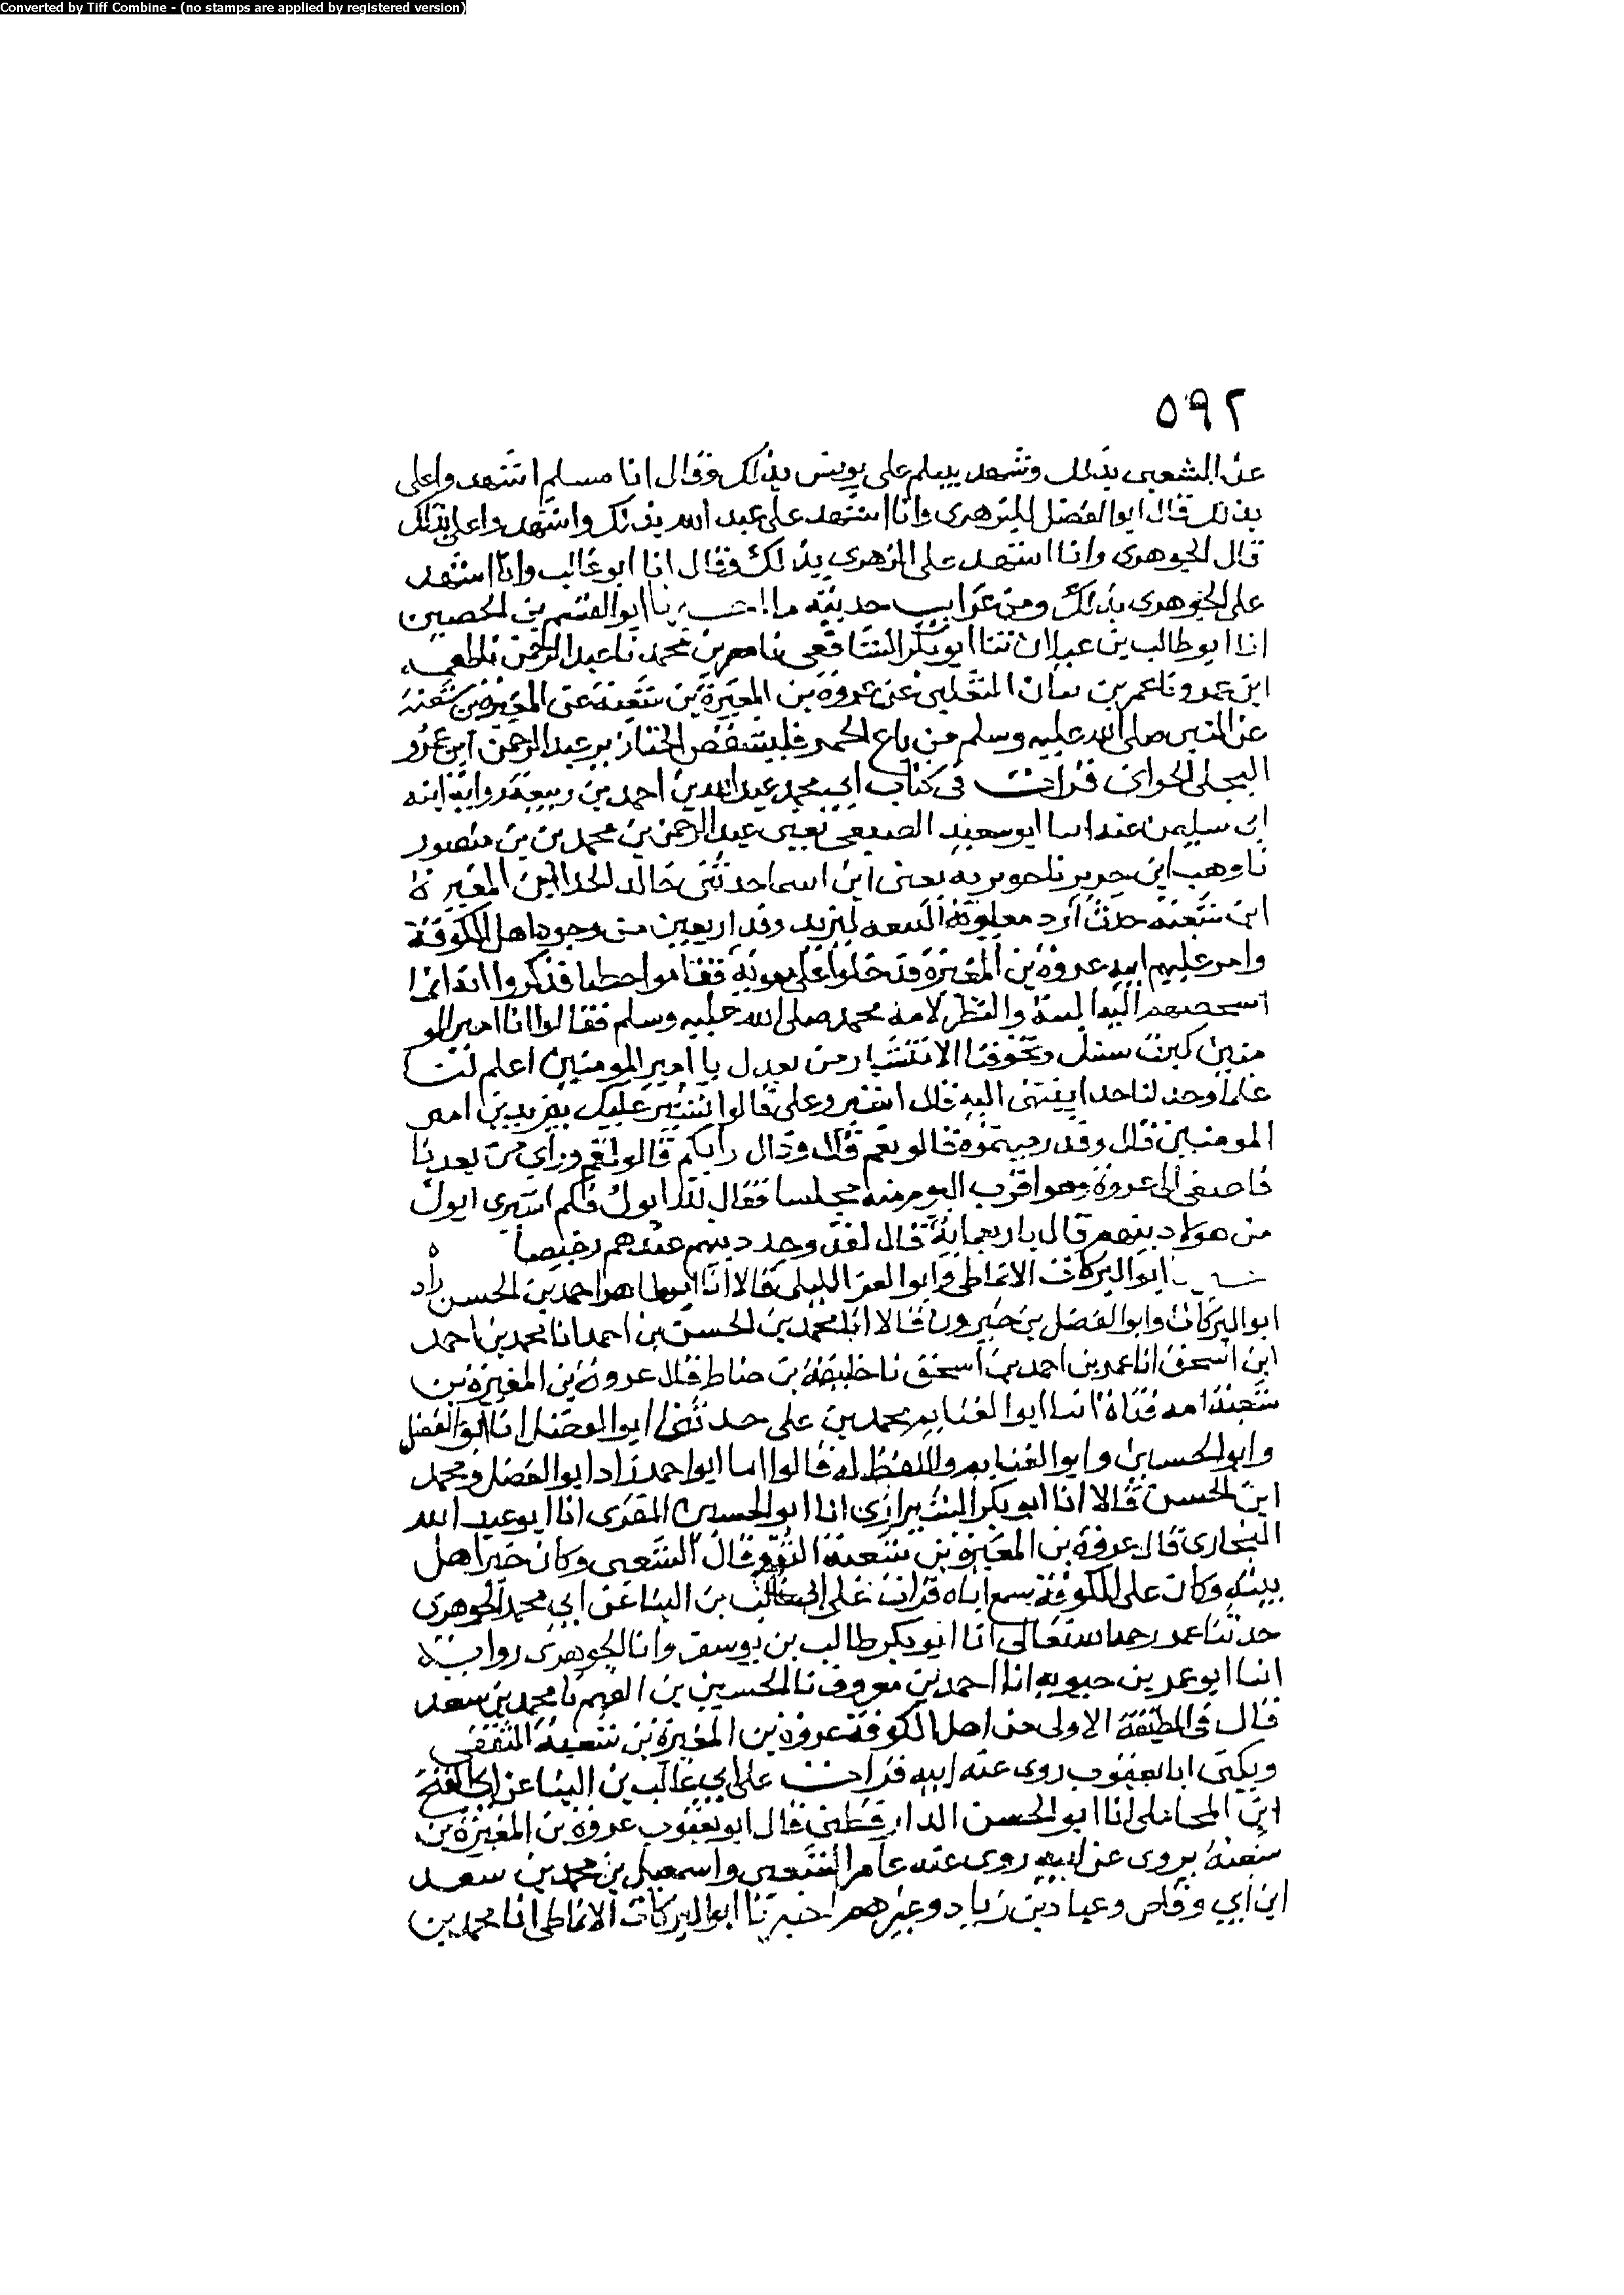 Converted by Tiff Combine - (no stamps are applied by registered version)
٥٩٢
عن الشعبي بذلك وشهد علي يونس بذلك وقال انا مسلم اشهدوا علي
بذلك قال ابو الفضل الزهري وانا اشهد علي عبد الله بذلك واشهدوا علي بذلك
قال الجوهري وانا اشهد علي الزهري بذلك فقال انا ابو غالب وانا اشهد
علي الجوهري بذلك ومن غرايب حديثه ما اخبرنا ابو القسم بن الحصين
انا ابو طالب بن غيلان ثنا ابو بكر الشافعي نا بن محمد نا عبد الرحمن
ابن عمرو نا عمر بن التغلبي عن عروة بن المغيرة بن شعبة عن المغيرة بن شعبة
عن النبي صلى الله عليه وسلم من باع الخمر فليشقص الخنازير عبد الرحمن ابن عمرو
البجلي الحراني قرات في كتاب ابي محمد عبد الله بن احمد بن ربيعة رواية ابنه
ابي سليمن عنه ابو سعيد يعني عبد الرحمن بن محمد بن بن منصور
نا وهب ابن جرير نا جويريه يعني ابن اسما حدثني خالد الحدا ان المغيرة
ابن شعبة معاوية البيعه ليزيد وفد اربعين من وجوه اهل الكوفة
وامر عليهم ابنه عروة بن المغيرة فدخلوا علي معوية فقاموا خطبا فذكروا انه انما
اشخصهم اليه والنظر لامة محمد صلى الله عليه وسلم فقالوا انا امير المو
منين كبرت سنك وتخوفنا الانتشار من بعدك يا امير المومنين اعلم لنا
علما وحد لنا حدا ينتهي اليه قال اشيروا علي قالوا نشير عليك بيزيد بن امير
المومنين قال وقد رضيتموه قالو نعم قال وذاك رايكم قالو نعم وراي من بعدنا
فاصغى الي عروة وهو اقرب القوم منه مجلسا فقال لله ابوك فكم اشترى ابوك
من هولاء دينهم قال باربعماية قال لقد وجد دينهم عندهم رخيصا ه
ابو البركات الانماطي وابو العز قالا انا ابو طاهر احمد بن الحسن زاد
ابو البركات وابو الفضل بن خيرون قالا انا محمد بن الحسن بن احمد انا محمد بن احمد
ابن اسحق انا عمر بن احمد بن اسحق نا خليفة بن خياط قال عروة بن المغيرة بن
شعبة امه فتاة انبا ابو الغنايم محمد بن علي حدثني ابو الفضل انا ابو الفضل
وابو الحسين وابو الغنايم واللفظ له قالوا انا ابو احمد زاد ابو الفضل ومحمد
ابن الحسن قالا انا ابو بكر الشيرازي انا ابو الحسن المقرى انا ابو عبد الله
البخاري قال عروة بن المغيرة بن شعبة الثقفي قال الشعبي وكان خير اهل
بيته وكان على الكوفة سمع اباه قرات على ابي غالب بن البنا عن ابي محمد الجوهري
حدثنا عمر رحمه الله تعالى انا ابو بكر طالب بن يوسف وانا الجوهري رواية
انبا ابو عمر بن حيويه انا احمد بن معروف نا الحسين بن الفهم نا محمد بن سعد
قال في الطبقة الاولى من اهل الكوفة عروة بن المغيرة بن شعبة الثقفي
ويكنى ابا يعقوب روى عنه ابيه قرات على ابي غالب بن البنا عن ابي الفتح
ابن المحاملي انا ابو الحسن الدارقطني قال ابو يعقوب عروة بن المغيرة بن
شعبة يروى عن ابيه روى عنه عامر الشعبي واسمعيل بن محمد بن سعد
ابن ابي وقاص وعباد بن زياد وغيرهم اخبرنا ابو البركات الانماطي انا محمد بن